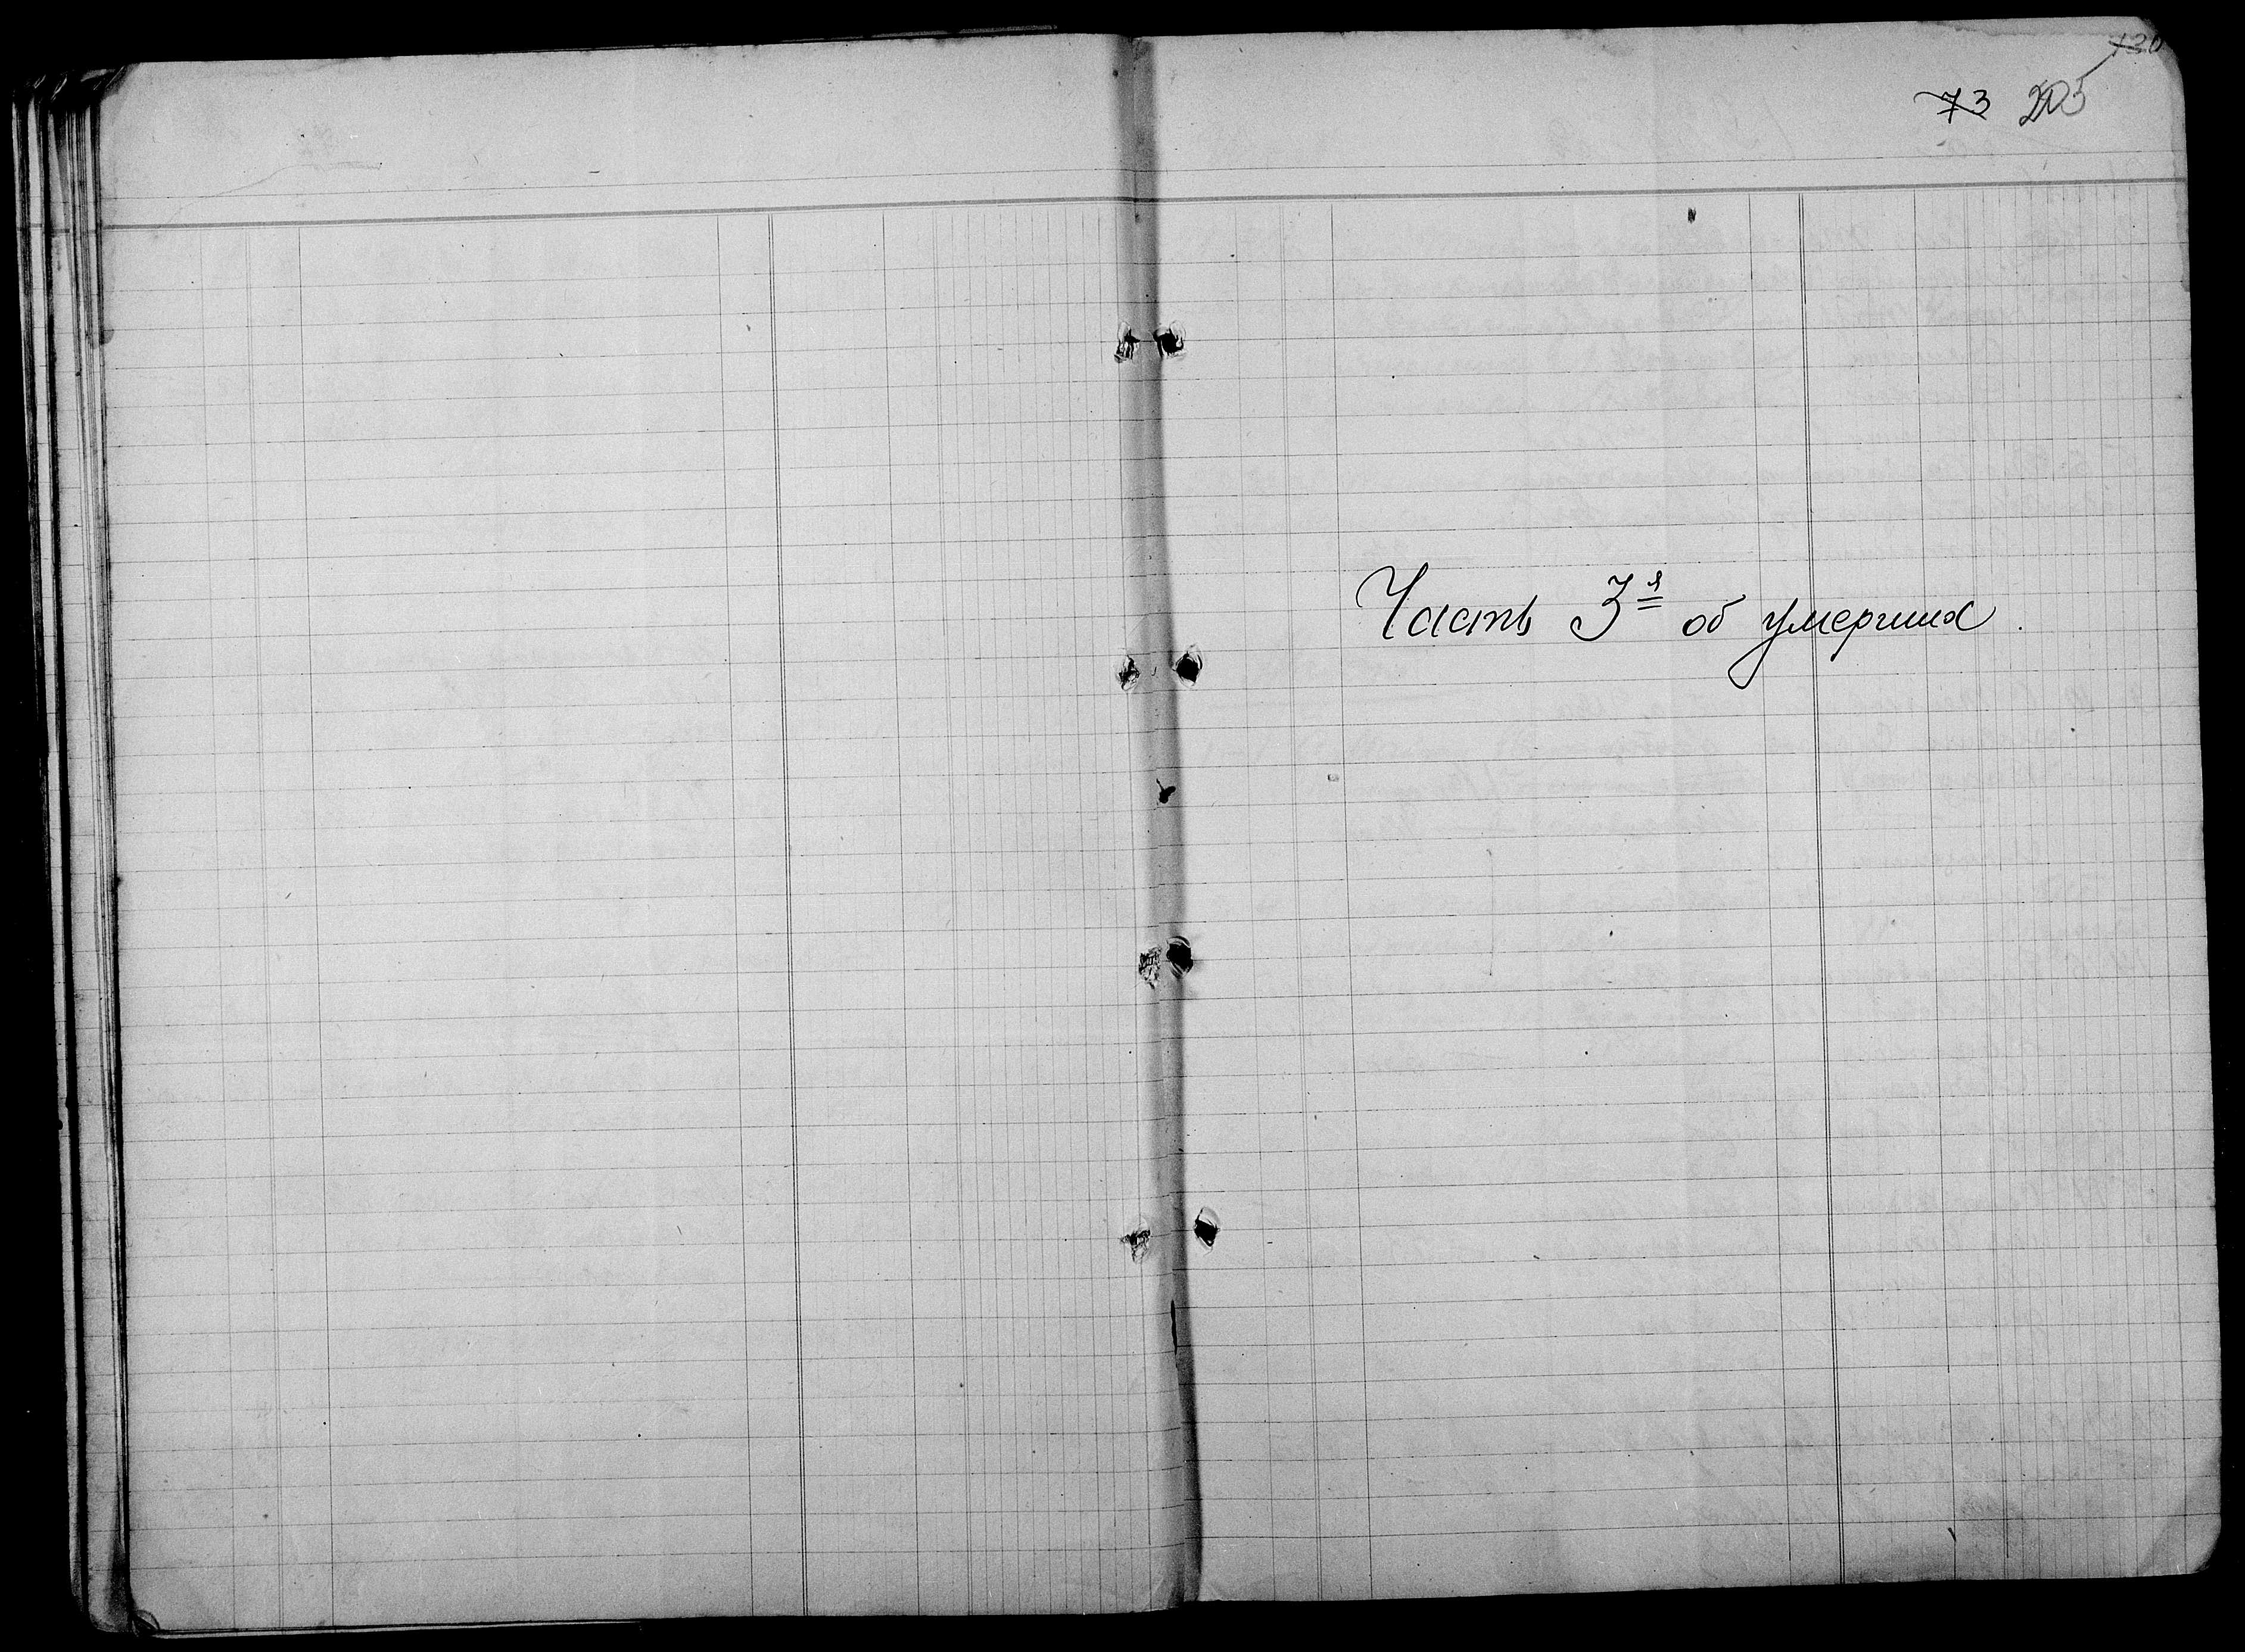 73 205
Часть 3я об умерших.